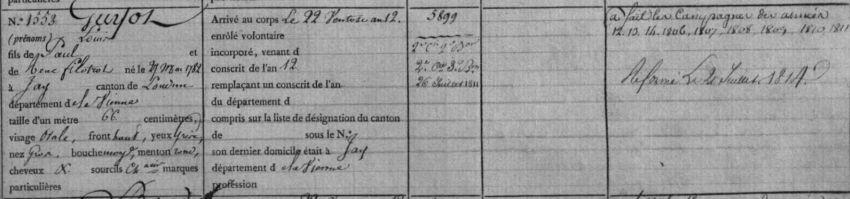 particulières
N.° 1553 Guyot
(prénoms) Louis
fils de Paul et
de né le 1782
à Jay canton de Loudun
département d la Vienne
taille d'un mètre 66 centimètres,
visage Ovale, front haut, yeux Gris,
nez Gros, bouche moy, menton rond,
cheveux & sourcils Ch marques
particulières
Arrivé au corps Le 22 Ventose an 12.
enrôlé volontaire
incorporé, venant d
conscrit de l'an 12
remplaçant un conscrit de l'an
du département d
compris sur la liste de désignation du canton
de sous le N.°
son dernier domicile était à Jay
département d la Vienne
profession
5899
2e Cie 2e Bon
2e Cie 3e Bon
26 Juillet 1811
a fait les Campagnes des années
12. 13. 14. 1806, 1807. 1808. 1809. 1810. 1811
Réformé Le 20 Juillet 1814.